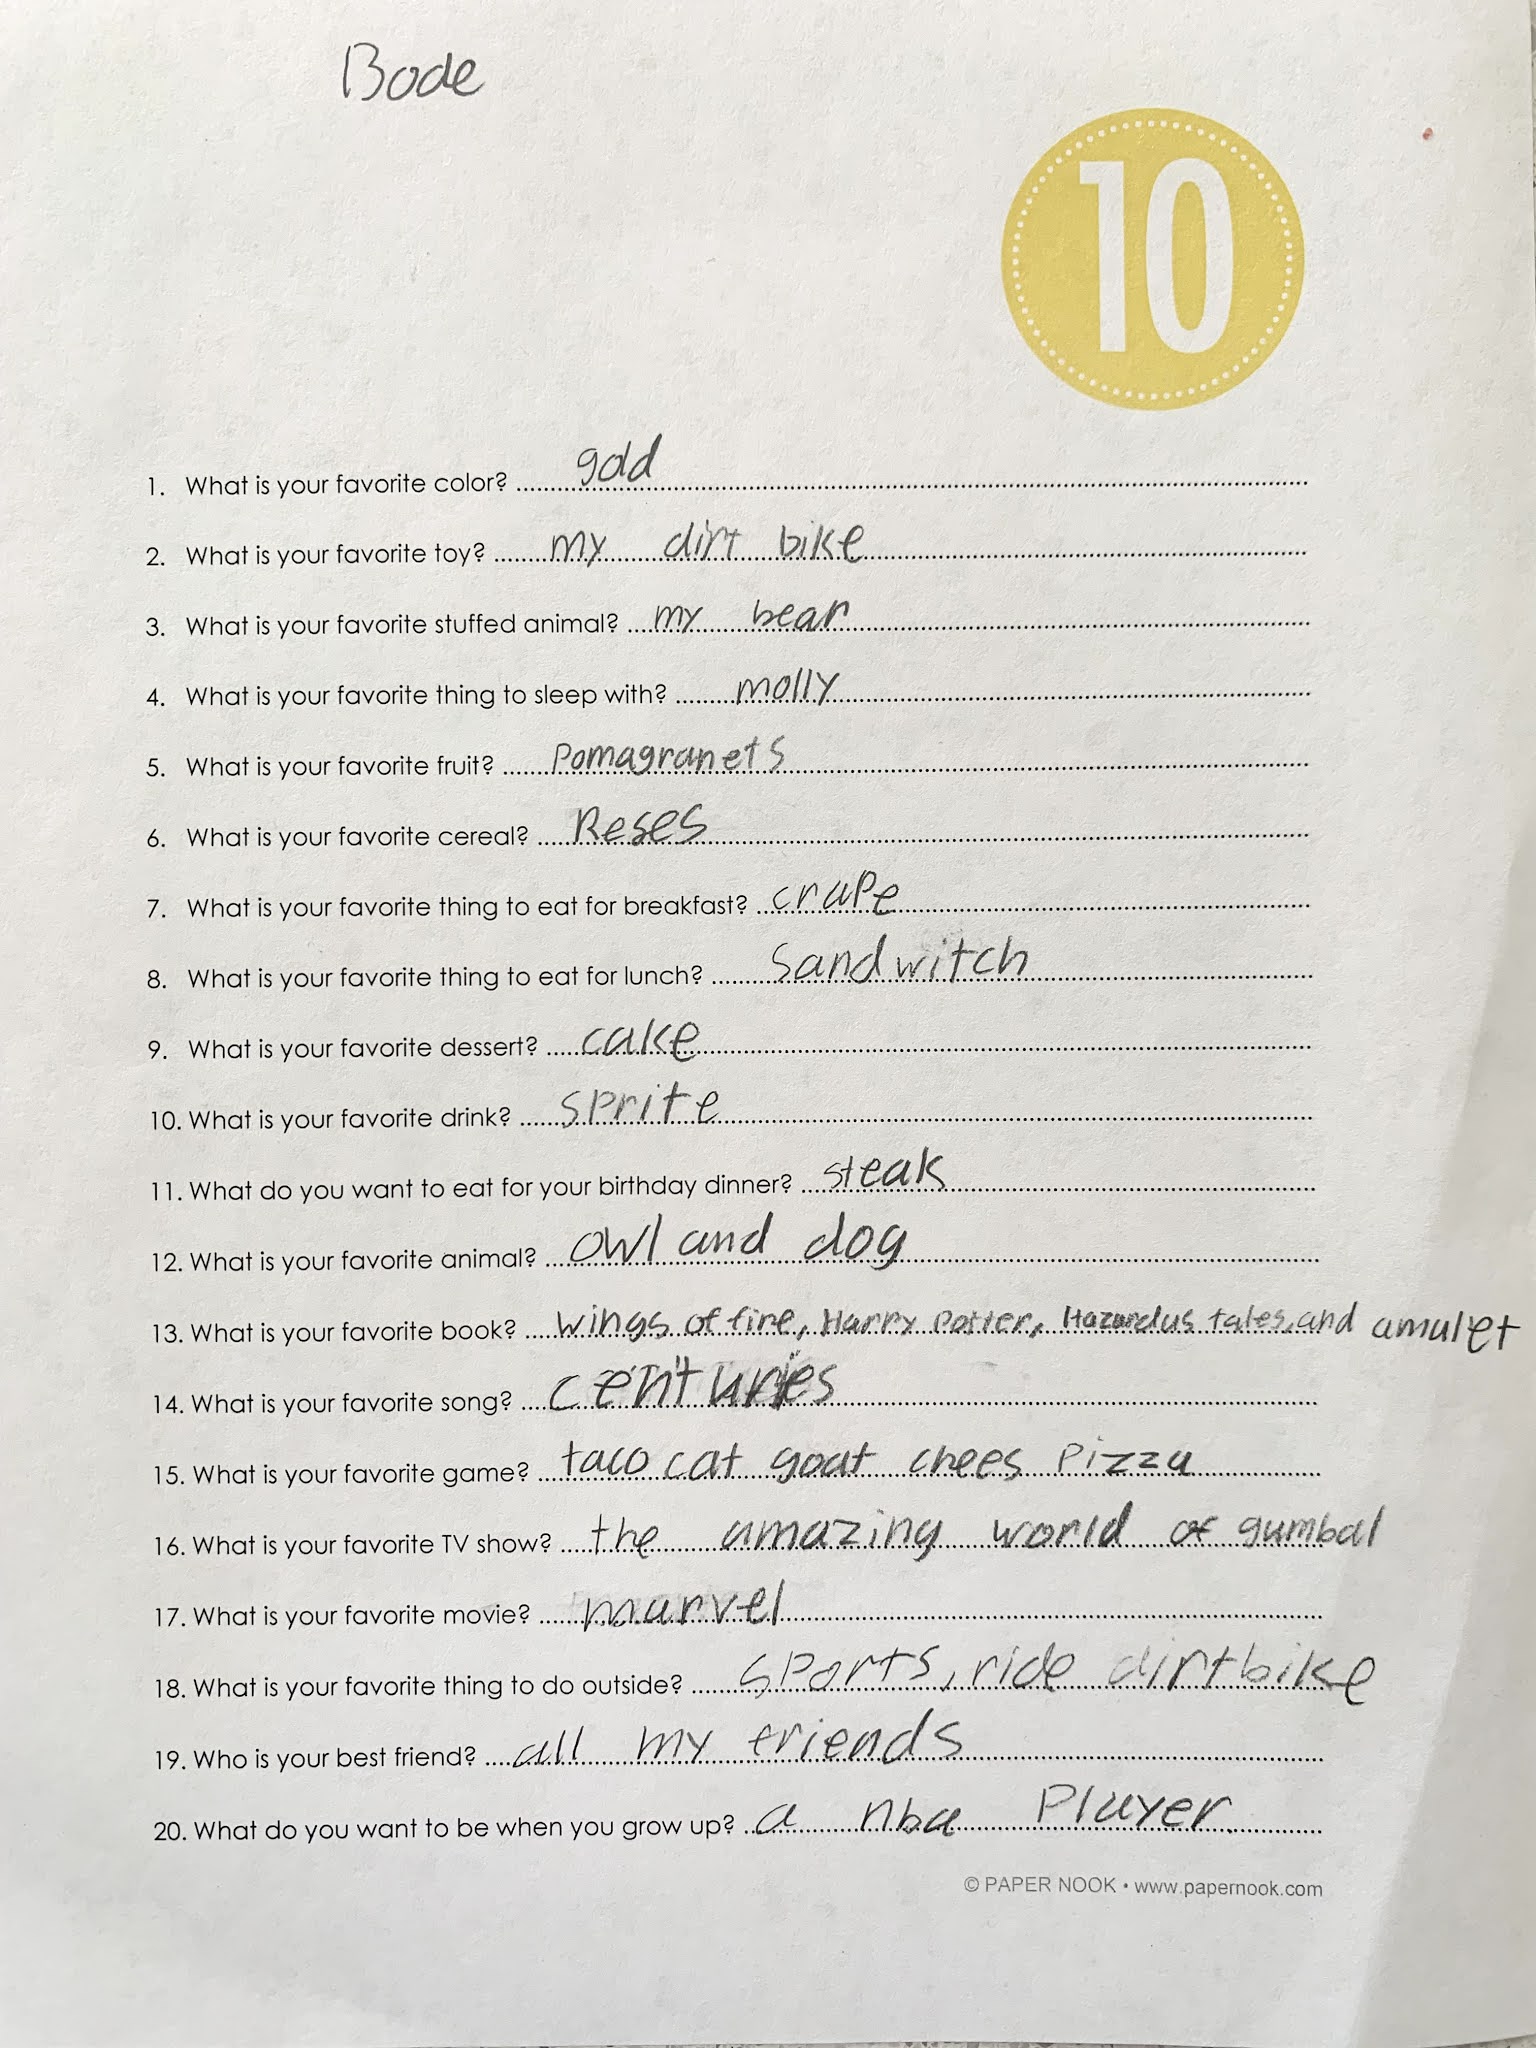 Bode
10
1. What is your favorite color? gold
2. What is your favorite toy? my dirt bike
3. What is your favorite stuffed animal? my bear
4. What is your favorite thing to sleep with? molly
5. What is your favorite fruit? Pomagranets
6. What is your favorite cereal? Reses
7. What is your favorite thing to eat for breakfast? crape
8. What is your favorite thing to eat for lunch? Sandwitch
9. What is your favorite dessert? cake
10. What is your favorite drink? sprite
11. What do you want to eat for your birthday dinner? steak
12. What is your favorite animal? owl and dog
13. What is your favorite book? wings of fire, Harry Potter, Hazardus tales, and amulet
14. What is your favorite song? centuries
15. What is your favorite game? taco cat goat chees pizza
16. What is your favorite TV show? the amazing world of gumbal
17. What is your favorite movie? marvel
18. What is your favorite thing to do outside? sports, ride dirtbike
19. Who is your best friend? all my friends
20. What do you want to be when you grow up? a nba Player.
© PAPER NOOK • www.papernook.com